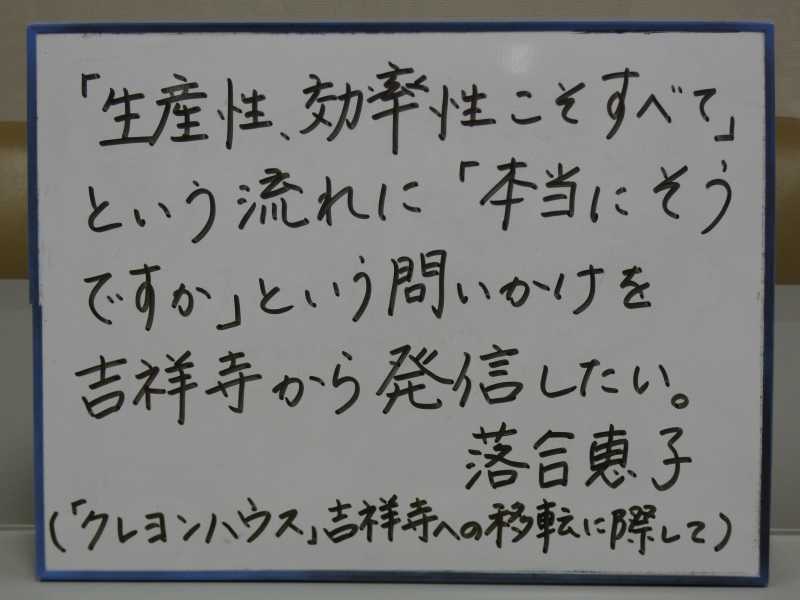 「生産性、効率性こそすべて」
という流れに「本当にそう
ですか」という問いかけを
吉祥寺から発信したい。
落合恵子
(「クレヨンハウス」吉祥寺への移転に際して)